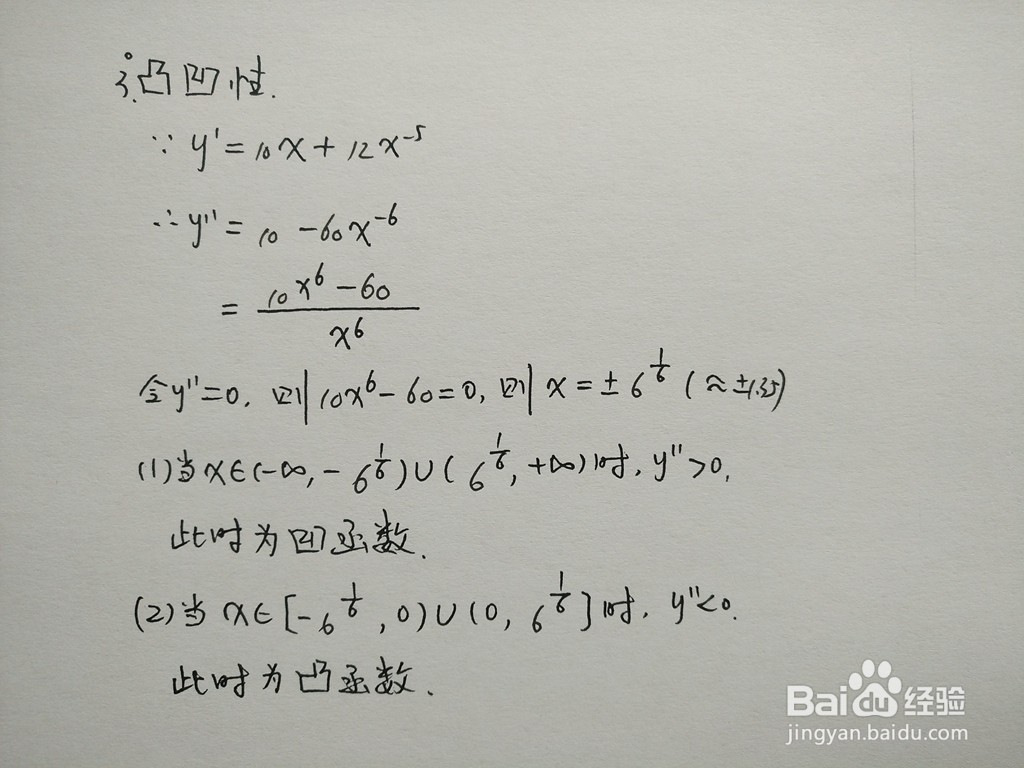 3°.凸凹性.
∵ y' = 10x + 12x⁻⁵
∴ y'' = 10 - 60x⁻⁶
= (10x⁶ - 60)/x⁶
令y''=0, 则10x⁶ - 60 = 0, 则 x = ± 6^(1/6) (≈±1.35)
(1)当x∈(-∞, -6^(1/6))∪(6^(1/6), +∞)时, y''>0,
此时为凹函数.
(2)当x∈[-6^(1/6), 0)∪(0, 6^(1/6)]时, y''<0.
此时为凸函数.
Baidu经验
jingyan.baidu.com